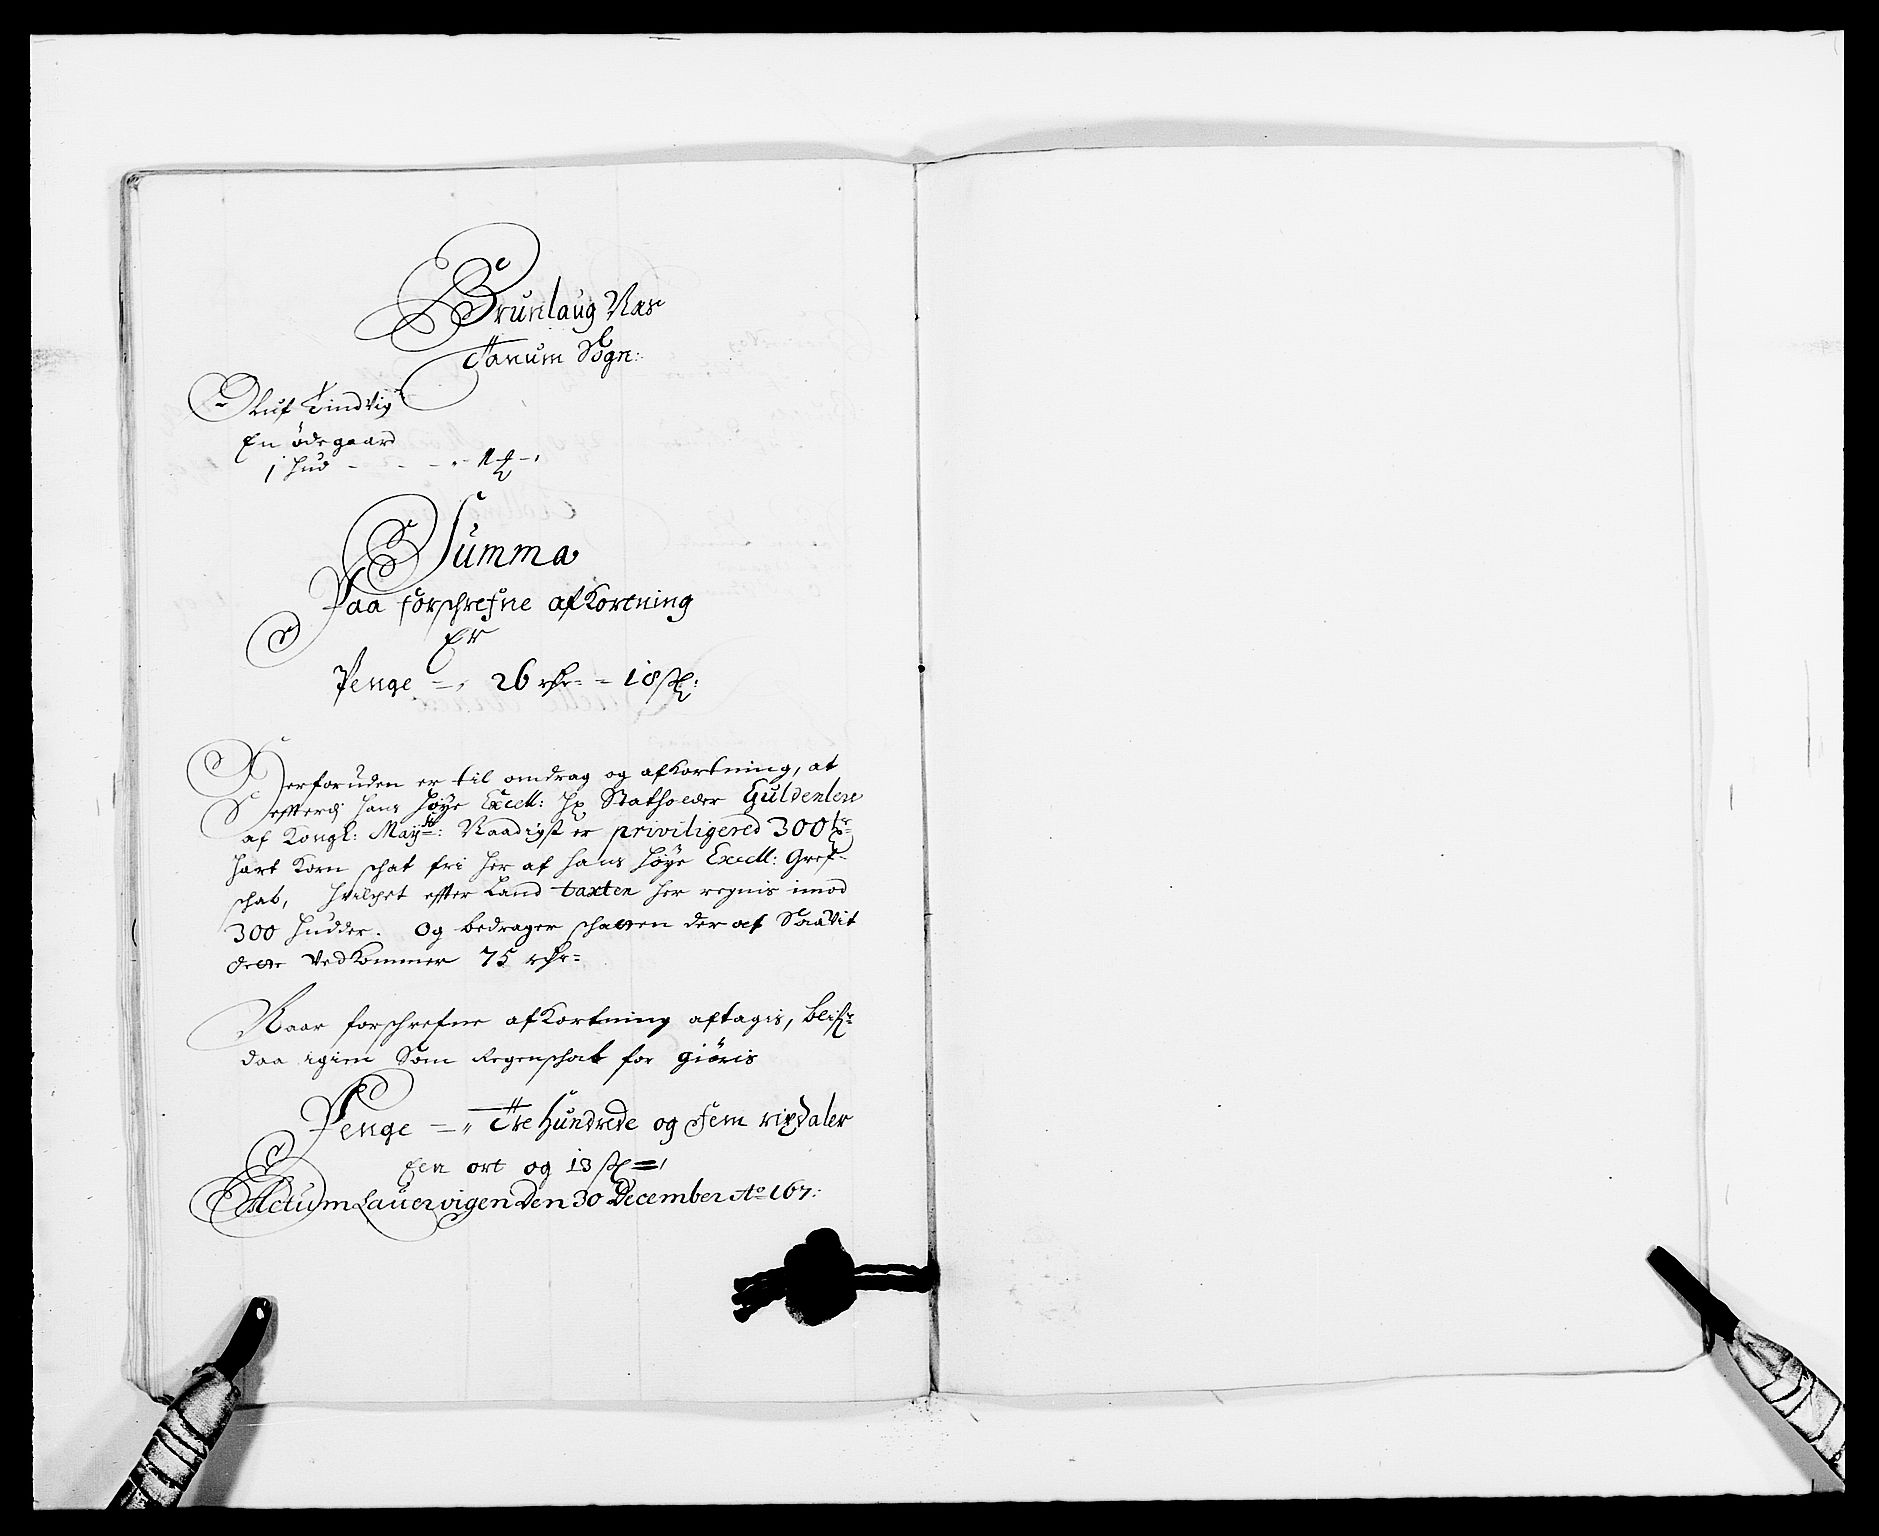 Brunlaug Næs
Tanum Sogn:
Oluf Tindvig
En ødegaard
1 hud - - - - 1 ℔ -
Summa
Paa forschrefne afkortning
Er
Penge = 26 rdr = 18 sk:
Herforuden er til omdrag og afkortning, at
efftersom hans høye Excell: Hr Statholder Guldenlew
af Kongl: Mayst: Naadigst er priviligered 300 tr
hart Korn schat fri her af hans høye Excell: Gref-
schab, hvilchet effter Land taxten her regnis imod
300 hudder. Og bedrager schatten der af Saavit
dette vedkommer 75 rdr=
Naar forschrefne afkortning aftagis, blifr
daa igien som Regenschab for giøris
Penge = Tre hundrede og fem rixdaler
Een ort og 13 sk =
Actum Lauervigen den 30 December Ao 167: